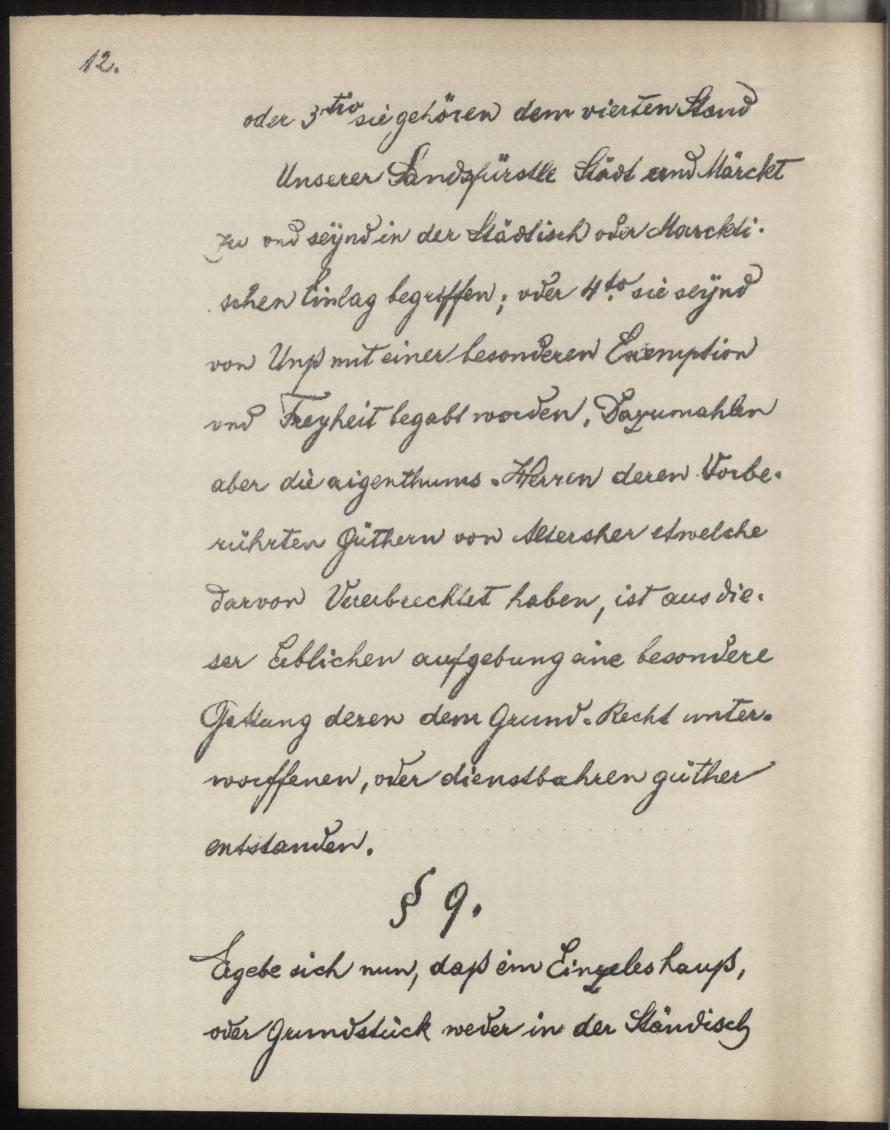 12.
oder 3tio sie gehören dem vierten Stand
Unserer Landsfürstle Städt und Märckt
zu und seÿnd in der Städtisch oder Marckti-
schen Einlag begriffen; oder 4to sie seÿnd
von Unß mit einer besonderen Exemption
und Freyheit begabt worden. Dazumahlen
aber die aigenthums-Herren deren Vorbe-
rührten Güthern von Altersher etwelche
darvon Vererbrechtet haben, ist aus die-
ser Erblichen aufgebung eine besondere
Gattung deren dem Grund-Recht unter-
worffenen, oder dienstbahren güther
entstanden.
§ 9.
Ergebe sich nun, daß ein Einzeles hauß,
oder Grundstück weder in der Ständisch